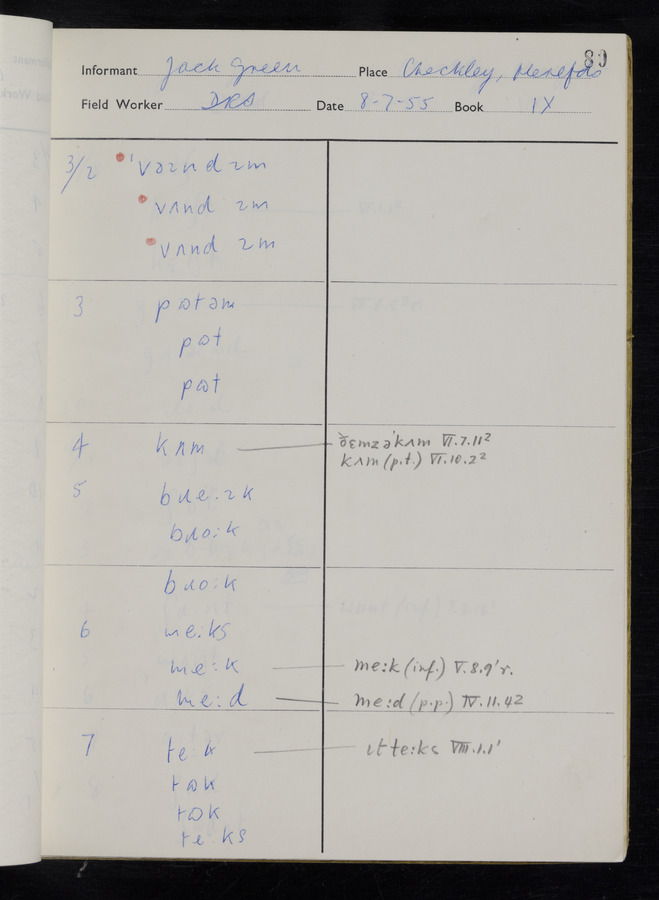 89
Informant Jack Green Place Checkley, Herefds
Field Worker DRS Date 8-7-55 Book IX
3/2 ˈvəɪnd ɪm
vʌnd ɪm
vʌnd ɪm
3 pɷtəm
pɷt
pɷt
4 kʌm ðɛmzəˈkʌm VI.7.11²
kʌm (p.t.) VI.10.2²
5 bɹe:ɪk
bɹo:k
bɹo:k
6 me:ks
me:k me:k (inf.) V.8.9'r.
me:d me:d (p.p.) IV.11.42
7 te:k ɩt te:ks VIII.1.1'
tɷk
tɷk
te:ks